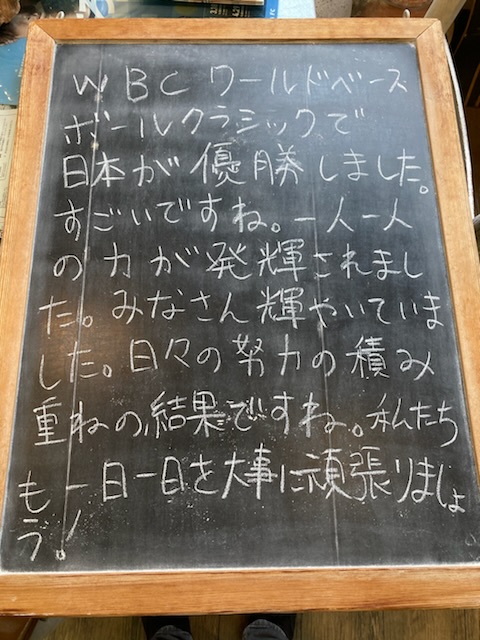 WBCワールドベース
ボールクラシックで
日本が優勝しました。
すごいですね。一人一人
の力が発輝されまし
た。みなさん輝やいていま
した。日々の努力の積み
重ねの結果ですね。私たち
も一日一日を大事に頑張りましょ
う。